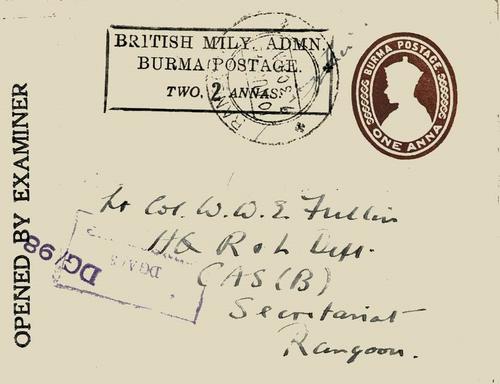 BRITISH MILY. ADMN.
BURMA POSTAGE.
TWO 2 ANNAS.
BURMA POSTAGE
ONE ANNA
OPENED BY EXAMINER
DG/98
Lt Col. W. W. E.
HQ R & L Dept.
CAS (B)
Secretariat
Rangoon.